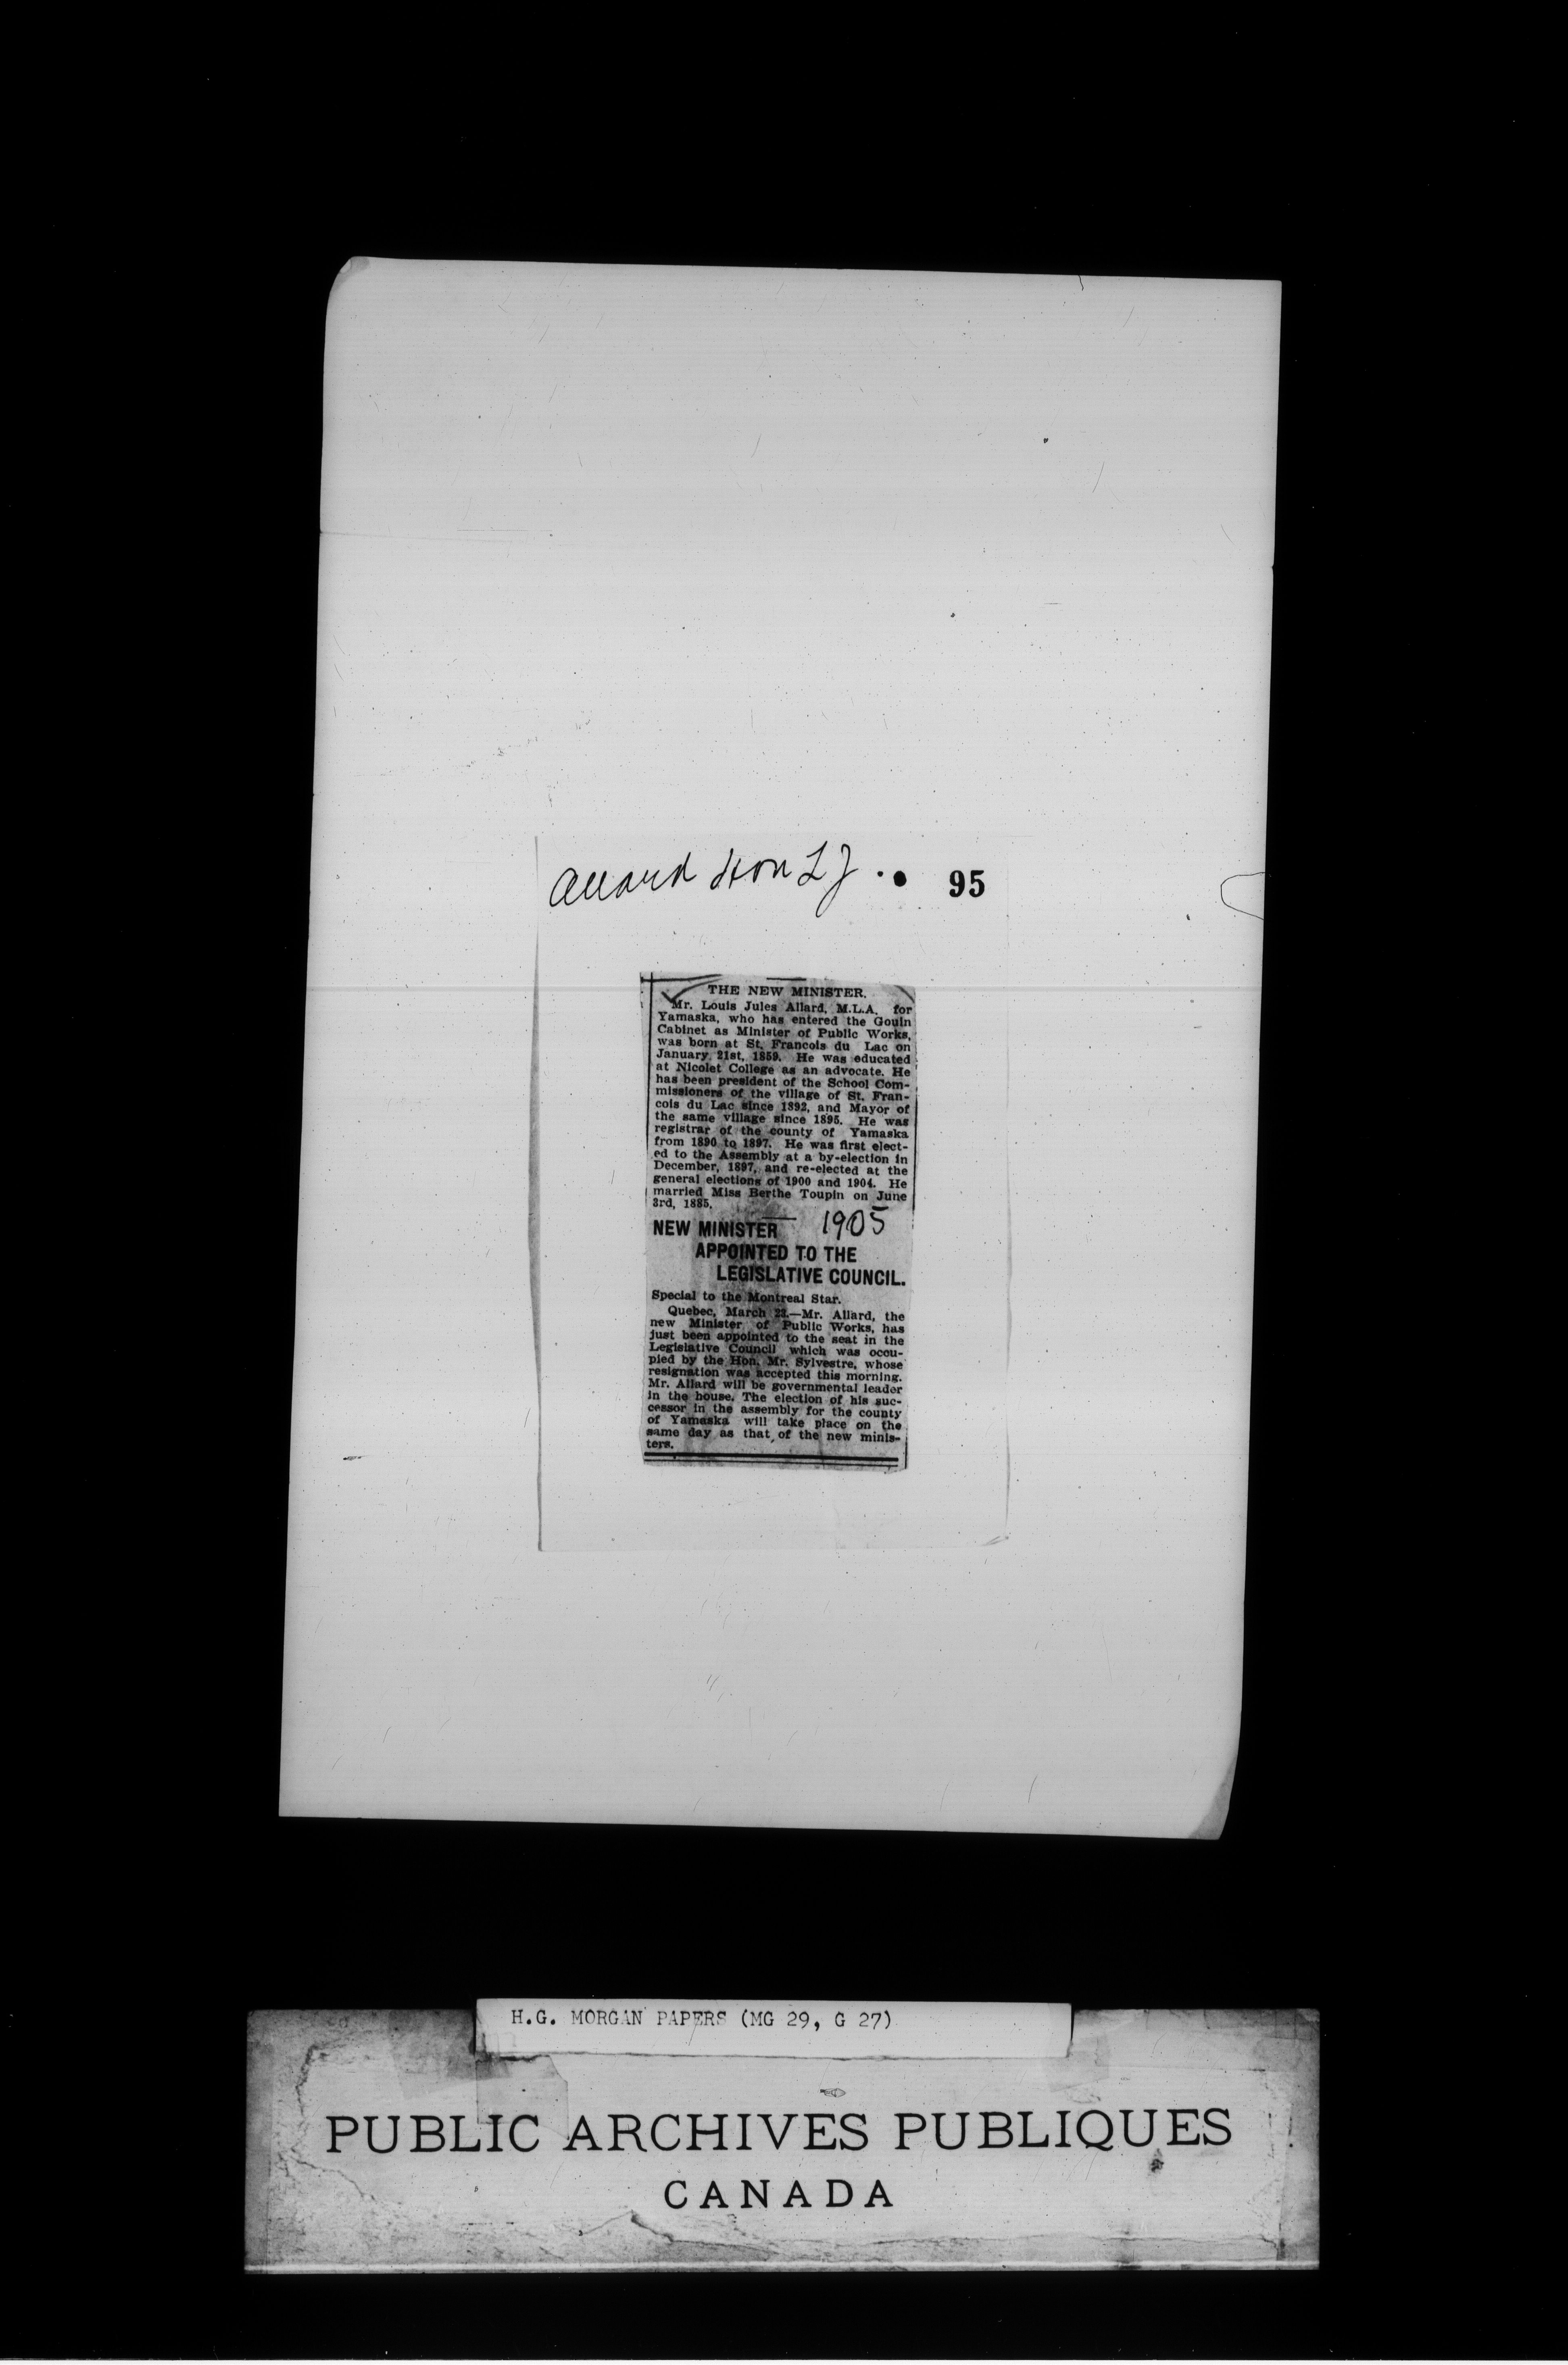 Allard Hon L J . • 95
THE NEW MINISTER.
Mr. Louis Jules Allard, M.L.A. for
Yamaska, who has entered the Gouin
Cabinet as Minister of Public Works,
was born at St. Francois du Lac on
January 21st, 1859. He was educated
at Nicolet College as an advocate. He
has been president of the School Com-
missioners of the village of St. Fran-
cois du Lac since 1892, and Mayor of
the same village since 1895. He was
registrar of the county of Yamaska
from 1890 to 1897. He was first elect-
ed to the Assembly at a by-election in
December, 1897, and re-elected at the
general elections of 1900 and 1904. He
married Miss Berthe Toupin on June
3rd, 1885.
1905
NEW MINISTER
APPOINTED TO THE
LEGISLATIVE COUNCIL.
Special to the Montreal Star.
Quebec, March 23.—Mr. Allard, the
new Minister of Public Works, has
just been appointed to the seat in the
Legislative Council which was occu-
pied by the Hon. Mr. Sylvestre, whose
resignation was accepted this morning.
Mr. Allard will be governmental leader
in the house. The election of his suc-
cessor in the assembly for the county
of Yamaska will take place on the
same day as that of the new minis-
ters.
H.G. MORGAN PAPERS (MG 29, G 27)
PUBLIC ARCHIVES PUBLIQUES
CANADA